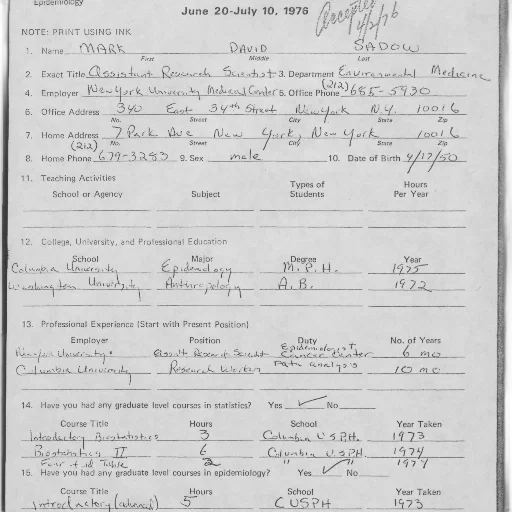 Epidemiology
June 20-July 10, 1976
Accepted 4/2/76
NOTE: PRINT USING INK
1. Name MARK DAVID SADOW
First Middle Last
2. Exact Title Assistant Research Scientist 3. Department Environmental Medicine
4. Employer New York University Medical Center 5. Office Phone (212) 685-5930
6. Office Address 340 East 34th Street New York N.Y. 10016
No. Street City State Zip
7. Home Address 7 Park Ave New York, New York 10016
No. Street City State Zip
8. Home Phone (212) 679-3283 9. Sex male 10. Date of Birth 4/17/50
11. Teaching Activities
School or Agency Subject Types of Students Hours Per Year
12. College, University, and Professional Education
School Major Degree Year
Columbia University Epidemiology M.P.H. 1975
Washington University Anthropology A.B. 1972
13. Professional Experience (Start with Present Position)
Employer Position Duty No. of Years
New York University Assist Research Scientist Epidemiologist Cancer Center 6 mo
Columbia University Research Worker Data analysis 10 mo
14. Have you had any graduate level courses in statistics? Yes ✓ No
Course Title Hours School Year Taken
Introductory Biostatistics 3 Columbia U SPH. 1973
Biostatistics II 6 Columbia U SPH. 1974
Fourfold Table 2 " " 1974
15. Have you had any graduate level courses in epidemiology? Yes ✓ No
Course Title Hours School Year Taken
Introductory (advanced) 5 CUSPH 1973